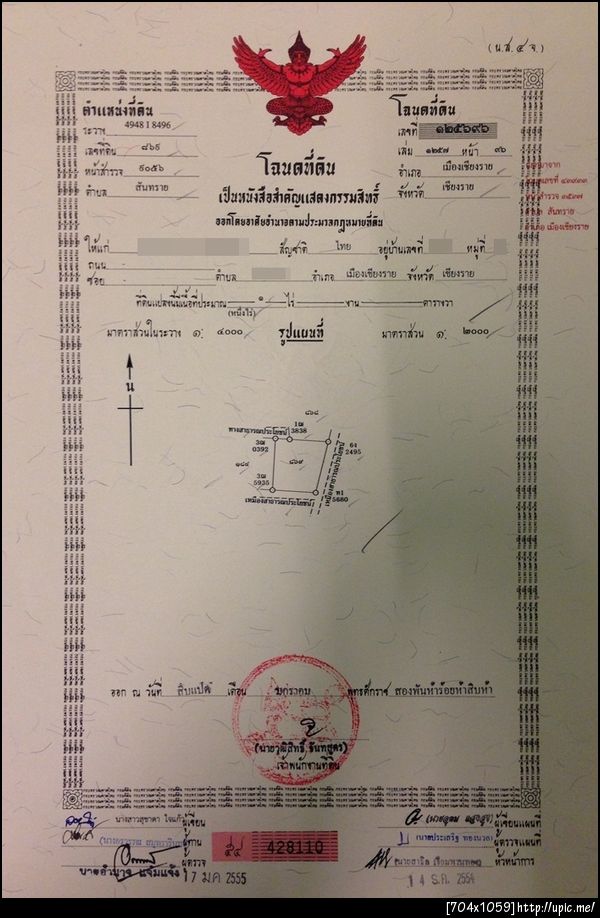 (น.ส. ๔ จ.)
ตำแหน่งที่ดิน
ระวาง 4948 I 8496
เลขที่ดิน ๘๖๙
หน้าสำรวจ ๙๐๕๖
ตำบล สันทราย
โฉนดที่ดิน
เลขที่ ๑๒๕๖๙๖
เล่ม ๑๒๕๗ หน้า ๙๖
อำเภอ เมืองเชียงราย
จังหวัด เชียงราย
สันทราย
อำเภอ เมืองเชียงราย
โฉนดที่ดิน
เป็นหนังสือสำคัญแสดงกรรมสิทธิ์
ออกโดยอาศัยอำนาจตามประมวลกฎหมายที่ดิน
ให้แก่ สัญชาติ ไทย อยู่บ้านเลขที่ หมู่ที่
ถนน
ซอย ตำบล อำเภอ เมืองเชียงราย จังหวัด เชียงราย
ที่ดินแปลงนี้มีเนื้อที่ประมาณ ๑ ไร่ งาน ตารางวา
(หนึ่งไร่)
มาตราส่วนในระวาง ๑: ๔๐๐๐ รูปแผนที่ มาตราส่วน ๑: ๒๐๐๐
น
๘๖๘
ทางสาธารณประโยชน์
1ฒ
3838
3ฒ
0392
64
2495
๘๖๙
๑๘๔
เหมืองสาธารณประโยชน์
3ฒ
5935
ท1
5680
เหมืองสาธารณประโยชน์
ออก ณ วันที่ สิบแปด เดือน มกราคม พุทธศักราช สองพันห้าร้อยห้าสิบห้า
(นายวุฒิสิทธิ์ จันทสูตร)
เจ้าพนักงานที่ดิน
นางสาวสุชาดา ใจแก้ว ผู้เขียน
ผู้ทาน
ผู้ตรวจ
นายอำนาจ แจ้มแจ้ง
17 ม.ค. 2555
428110
ผู้เขียนแผนที่
ผู้ตรวจแผนที่
หัวหน้าการ
14 ธ.ค. 2554
[704x1059]http://upic.me/